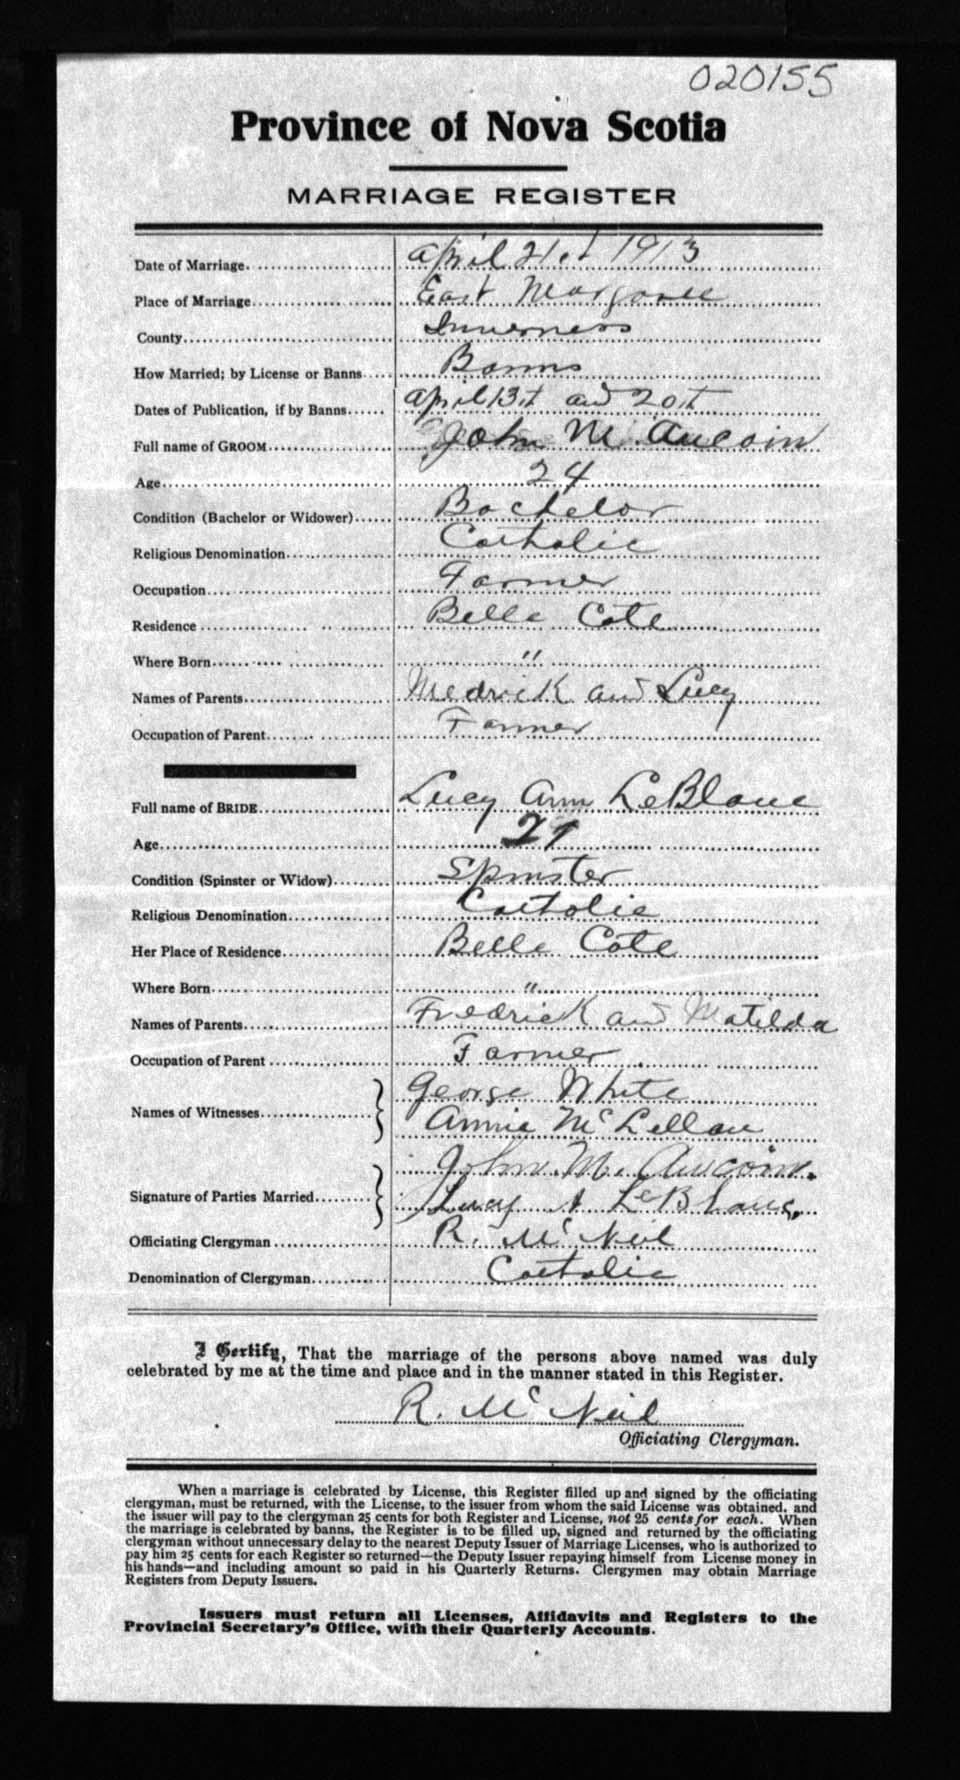 020155
Province of Nova Scotia
MARRIAGE REGISTER
Date of Marriage April 21st 1913
Place of Marriage East Margaree
County Inverness
How Married; by License or Banns Banns
Dates of Publication, if by Banns April 13th and 20th
Full name of GROOM John M. Aucoin
Age 24
Condition (Bachelor or Widower) Bachelor
Religious Denomination Catholic
Occupation Farmer
Residence Belle Cote
Where Born "
Names of Parents Medrick and Lucy
Occupation of Parent Farmer
Full name of BRIDE Lucy Ann LeBlanc
Age 21
Condition (Spinster or Widow) Spinster
Religious Denomination Catholic
Her Place of Residence Belle Cote
Where Born "
Names of Parents Fredrick and Matilda
Occupation of Parent Farmer
Names of Witnesses George White
Annie McLellan
Signature of Parties Married John M. Aucoin.
Lucy A LeBlanc,
Officiating Clergyman R. McNeil
Denomination of Clergyman Catholic
I Certify, That the marriage of the persons above named was duly
celebrated by me at the time and place and in the manner stated in this Register.
R. McNeil
Officiating Clergyman.
When a marriage is celebrated by License, this Register filled up and signed by the officiating
clergyman, must be returned, with the License, to the issuer from whom the said License was obtained, and
the issuer will pay to the clergyman 25 cents for both Register and License, not 25 cents for each. When
the marriage is celebrated by banns, the Register is to be filled up, signed and returned by the officiating
clergyman without unnecessary delay to the nearest Deputy Issuer of Marriage Licenses, who is authorized to
pay him 25 cents for each Register so returned—the Deputy Issuer repaying himself from License money in
his hands—and including amount so paid in his Quarterly Returns. Clergymen may obtain Marriage
Registers from Deputy Issuers.
Issuers must return all Licenses, Affidavits and Registers to the
Provincial Secretary's Office, with their Quarterly Accounts.